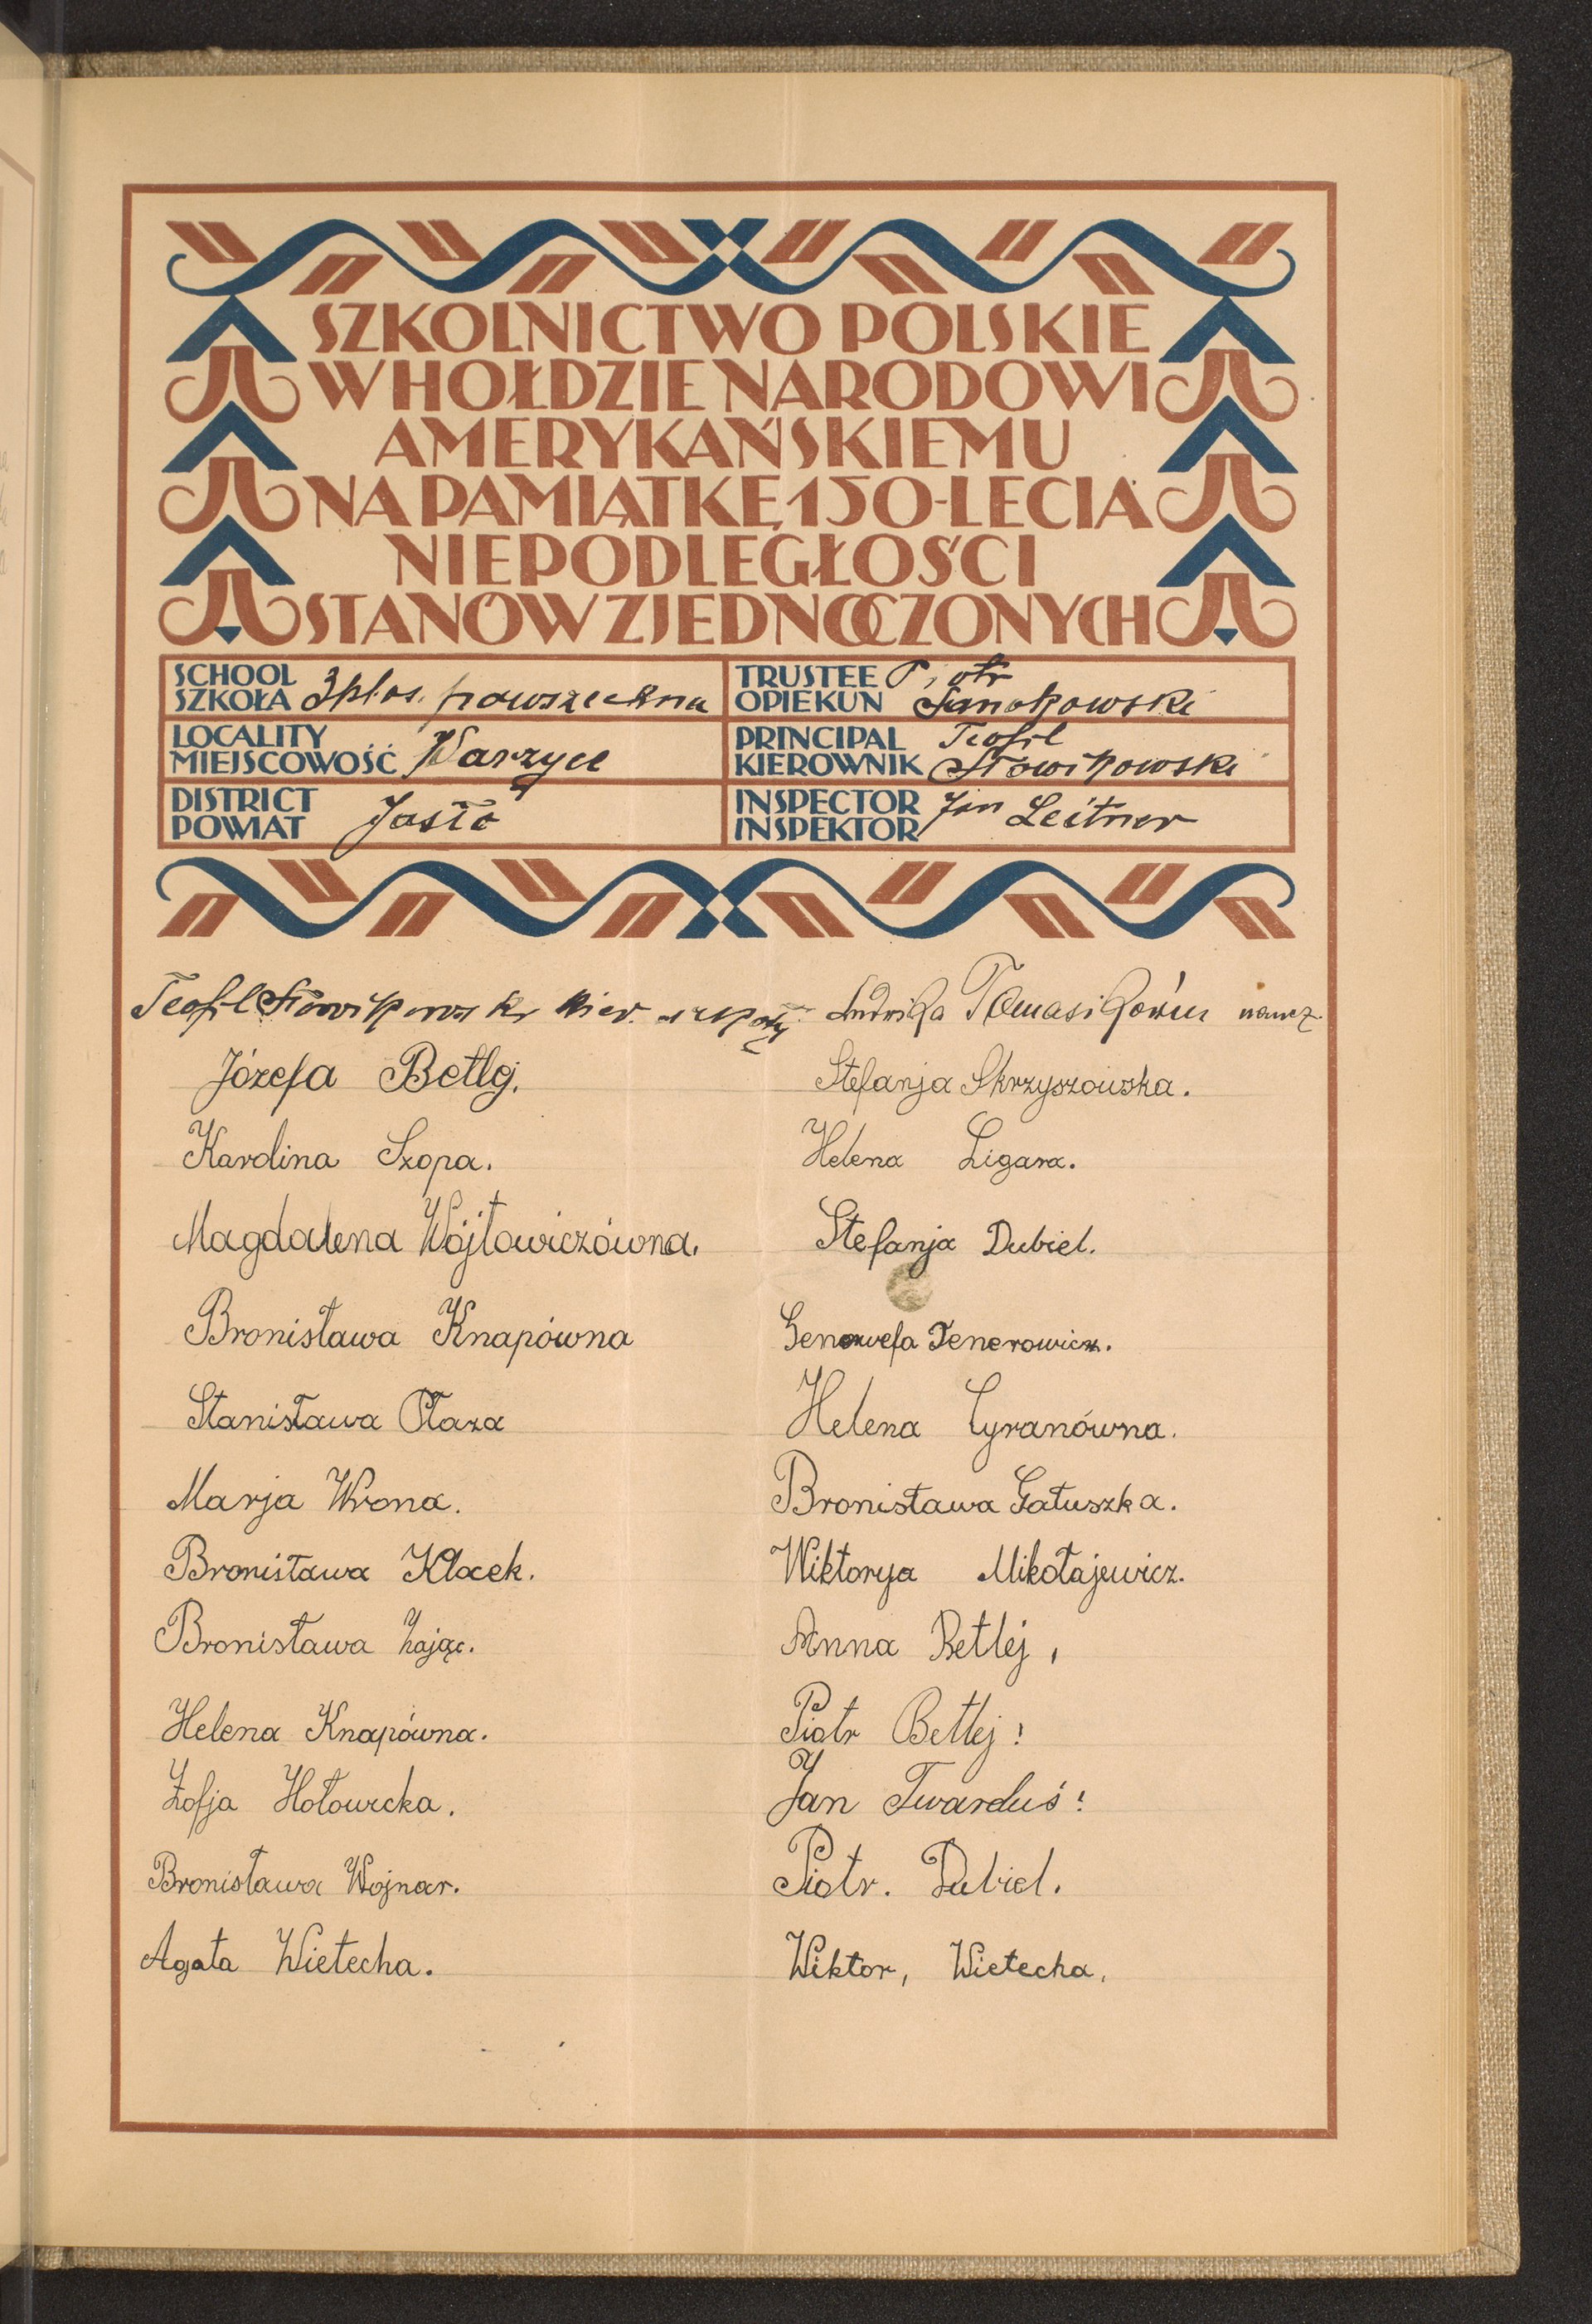 SZKOLNICTWO POLSKIE
W HOŁDZIE NARODOWI
AMERYKAŃSKIEMU
NA PAMIĄTKĘ 150-LECIA
NIEPODLEGŁOŚCI
STANÓW ZJEDNOCZONYCH
SCHOOL
SZKOŁA 3klas. powszechna
TRUSTEE Piotr
OPIEKUN Sanokowski
LOCALITY
MIEJSCOWOŚĆ Warzyce
PRINCIPAL Teofil
KIEROWNIK Słowikowski
DISTRICT
POWIAT Jasło
INSPECTOR
INSPEKTOR Jan Leitner
Teofil Słowikowski kier. szkoły
Józefa Betlej.
Karolina Szopa.
Magdalena Wójtowiczówna.
Bronisława Knapówna
Stanisława Płaza
Marja Wrona.
Bronisława Klocek.
Bronisława Zając.
Helena Knapówna.
Zofja Hołowicka.
Bronisława Wojnar.
Agata Wietecha.
Ludwika Tomasikówna naucz.
Stefanja Skrzyszowska.
Helena Ligara.
Stefanja Dubiel.
Genowefa Tenerowicz.
Helena Cyranówna.
Bronisława Gałuszka.
Wiktorya Mikołajewicz.
Anna Betlej,
Piotr Betlej!
Jan Twarduś!
Piotr. Dubiel.
Wiktor, Wietecha,